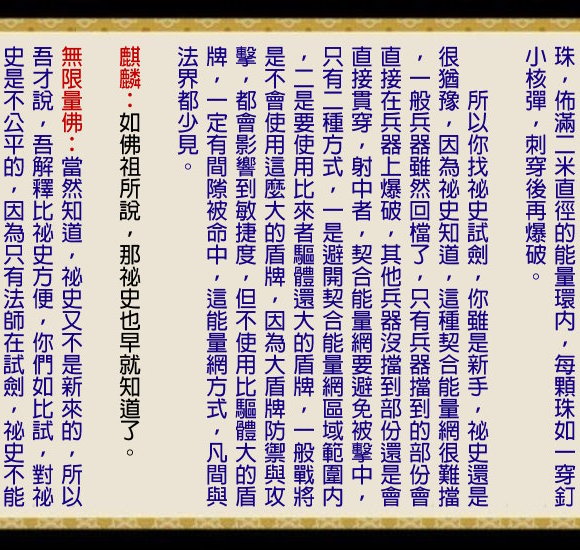 珠，佈滿二米直徑的能量環內，每顆珠如一穿釘
小核彈，刺穿後再爆破。
所以你找祕史試劍，你雖是新手，祕史還是
很猶豫，因為祕史知道，這種契合能量網很難擋
，一般兵器雖然回檔了，只有兵器擋到的部份會
直接在兵器上爆破，其他兵器沒擋到部份還是會
直接貫穿，射中者，契合能量網要避免被擊中，
只有二種方式，一是避開契合能量網區域範圍內
，二是要使用比來者驅體還大的盾牌，一般戰將
是不會使用這麼大的盾牌，因為大盾牌防禦與攻
擊，都會影響到敏捷度，但不使用比驅體大的盾
牌，一定有間隙被命中，這能量網方式，凡間與
法界都少見。
麒麟：如佛祖所說，那祕史也早就知道了。
無限量佛：當然知道，祕史又不是新來的，所以
吾才說，吾解釋比祕史方便，你們如比試，對祕
史是不公平的，因為只有法師在試劍，祕史不能